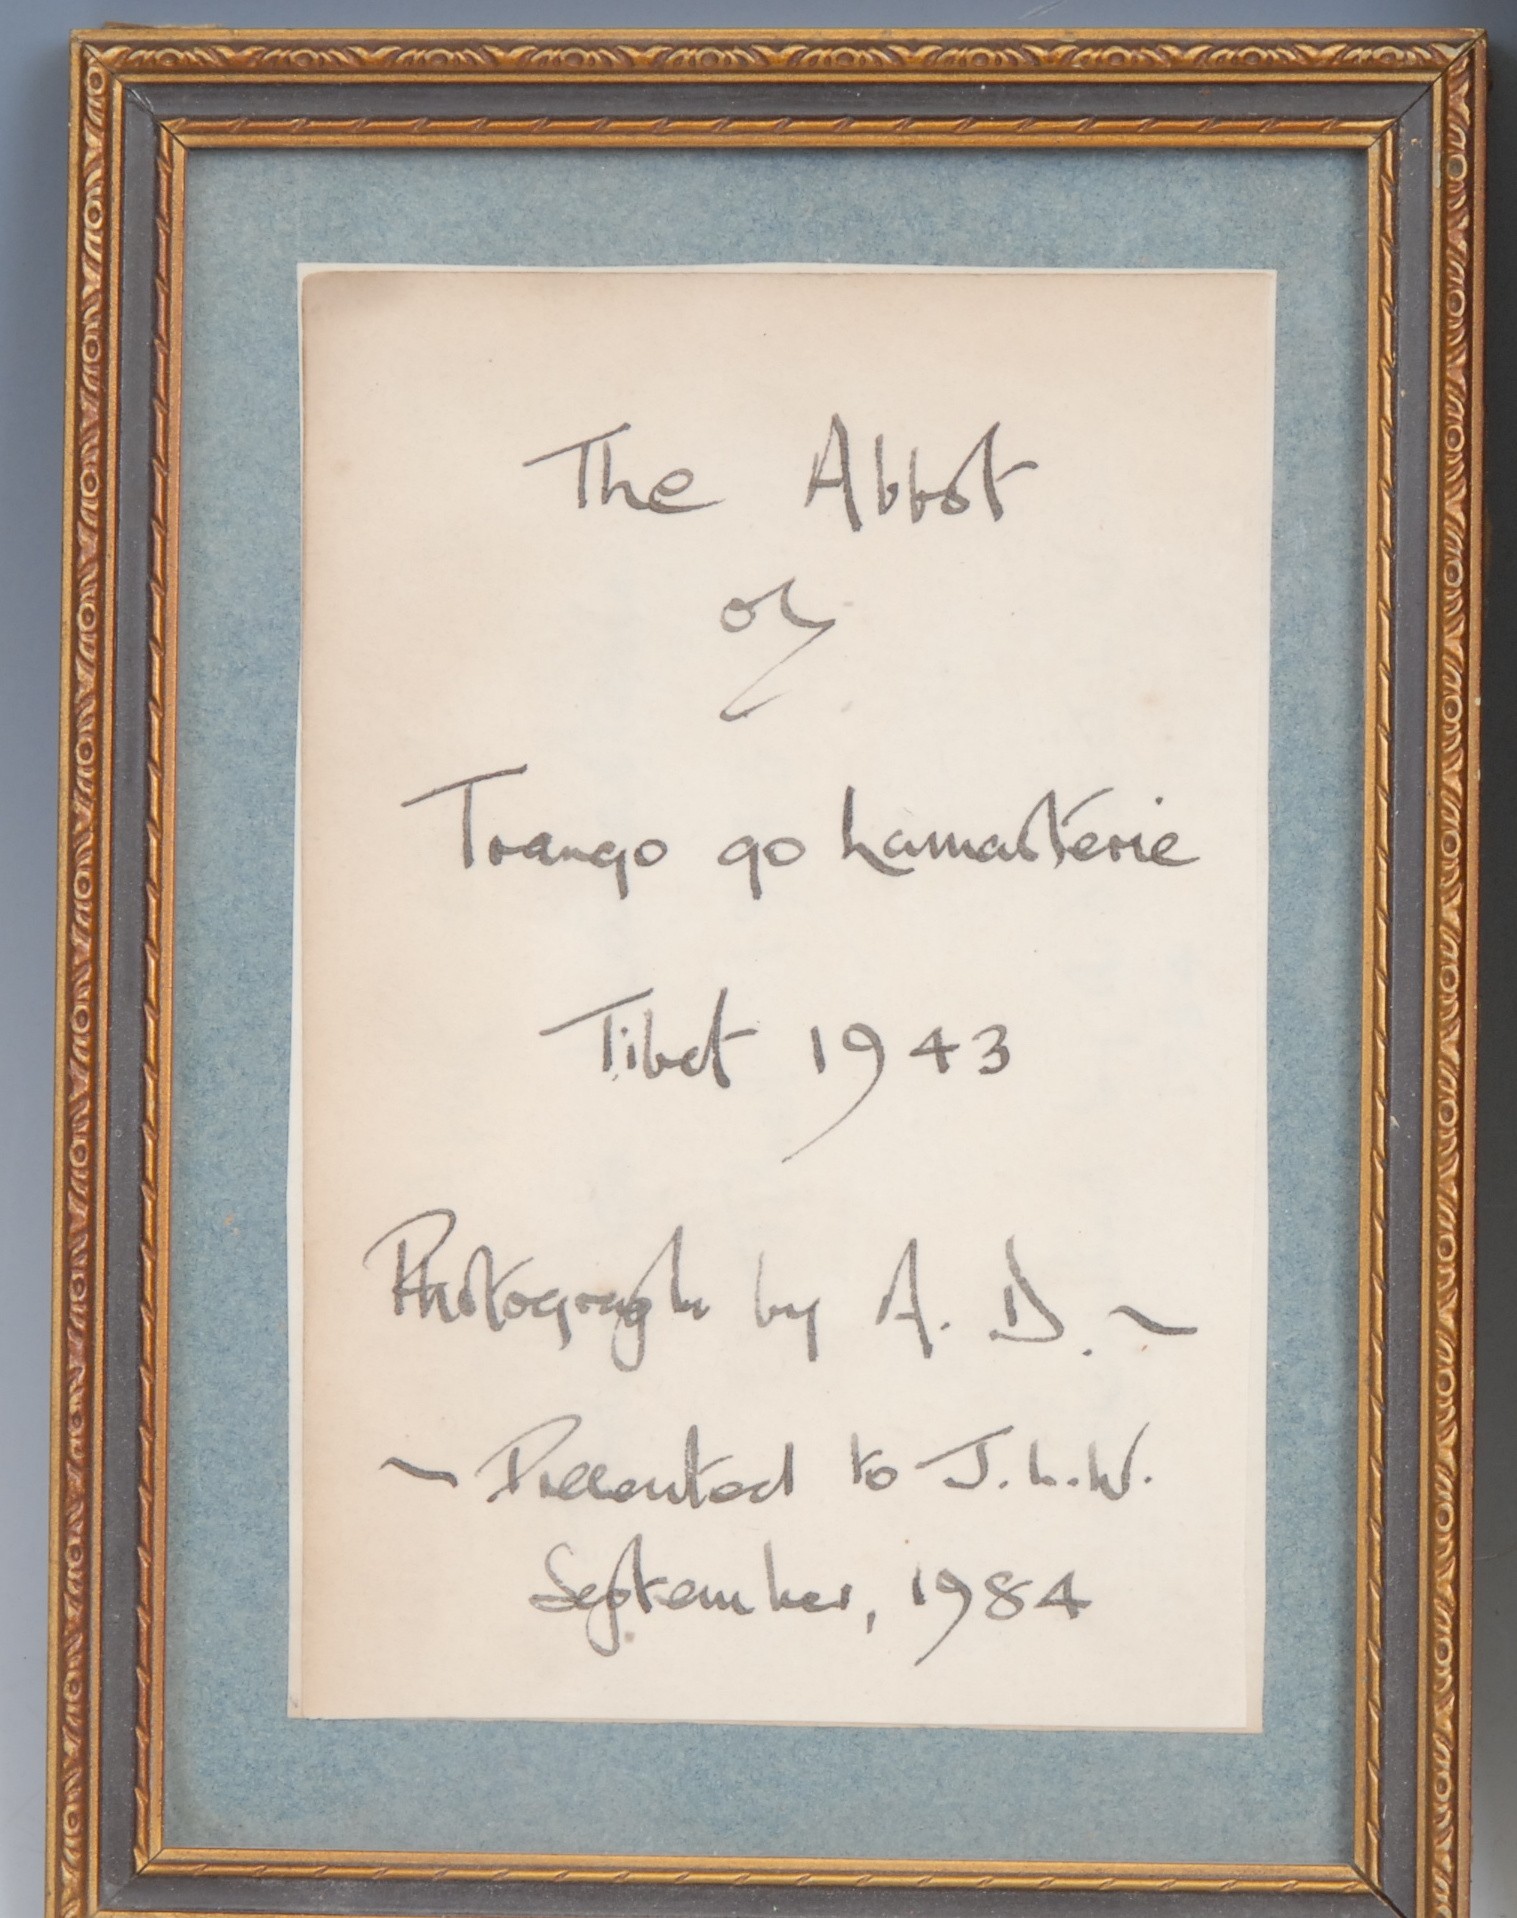 The Abbot
of
Trango go Lamasterie
Tibet 1943
Photograph by A. D. ~
~ Presented to J. L. W.
September, 1984